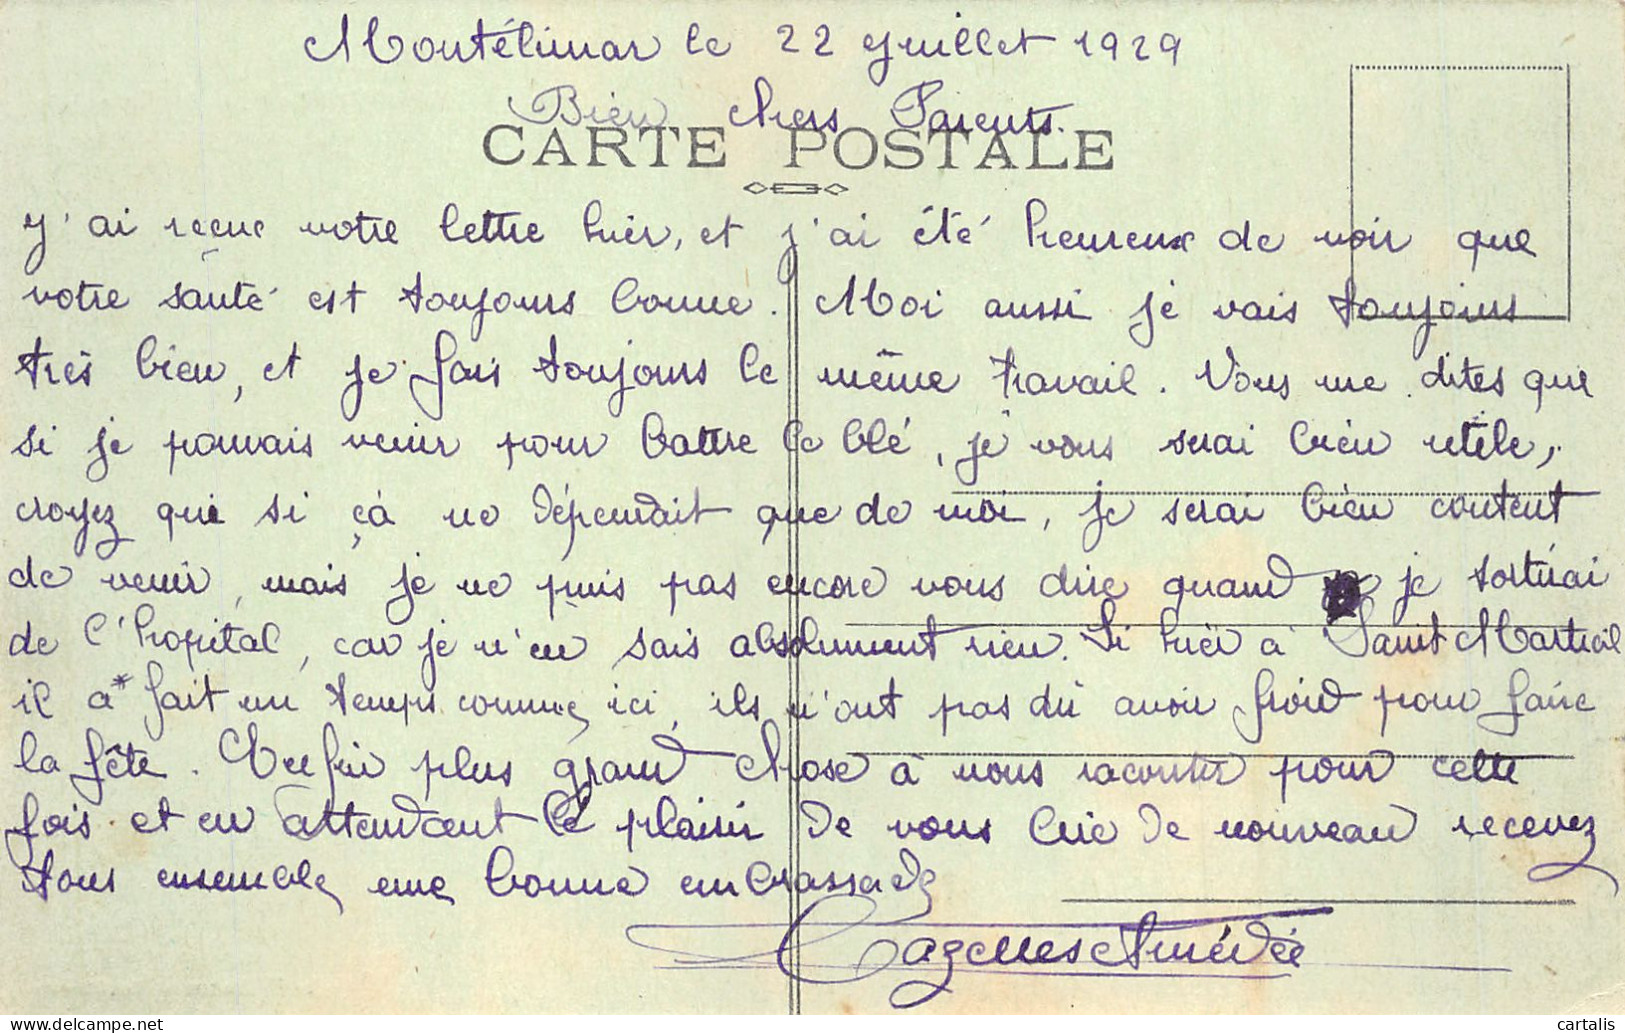 Montélimar le 22 Juillet 1929
Bien chers Parents.
CARTE POSTALE
J'ai reçue votre lettre hier, et j'ai été heureux de voir que
votre santé est toujours bonne. Moi aussi je vais toujours
très bien, et je fais toujours le même travail. Vous me dites que
si je pouvais venir pour battre le blé, je vous serai bien utile,
croyez que si çà ne dépendait que de moi, je serai bien content
de venir, mais je ne puis pas encore vous dire quand je sortirai
de l'hopital, car je n'en sais absolument rien. Si hier à Saint Martial
il a fait un temps comme ici, ils n'ont pas dû avoir froid pour faire
la fête. Enfin plus grand chose à vous raconter pour cette
fois et en attendant le plaisir de vous lire de nouveau recevez
tous ensemble une bonne embrassade
Cazelles Amédée
cartalis